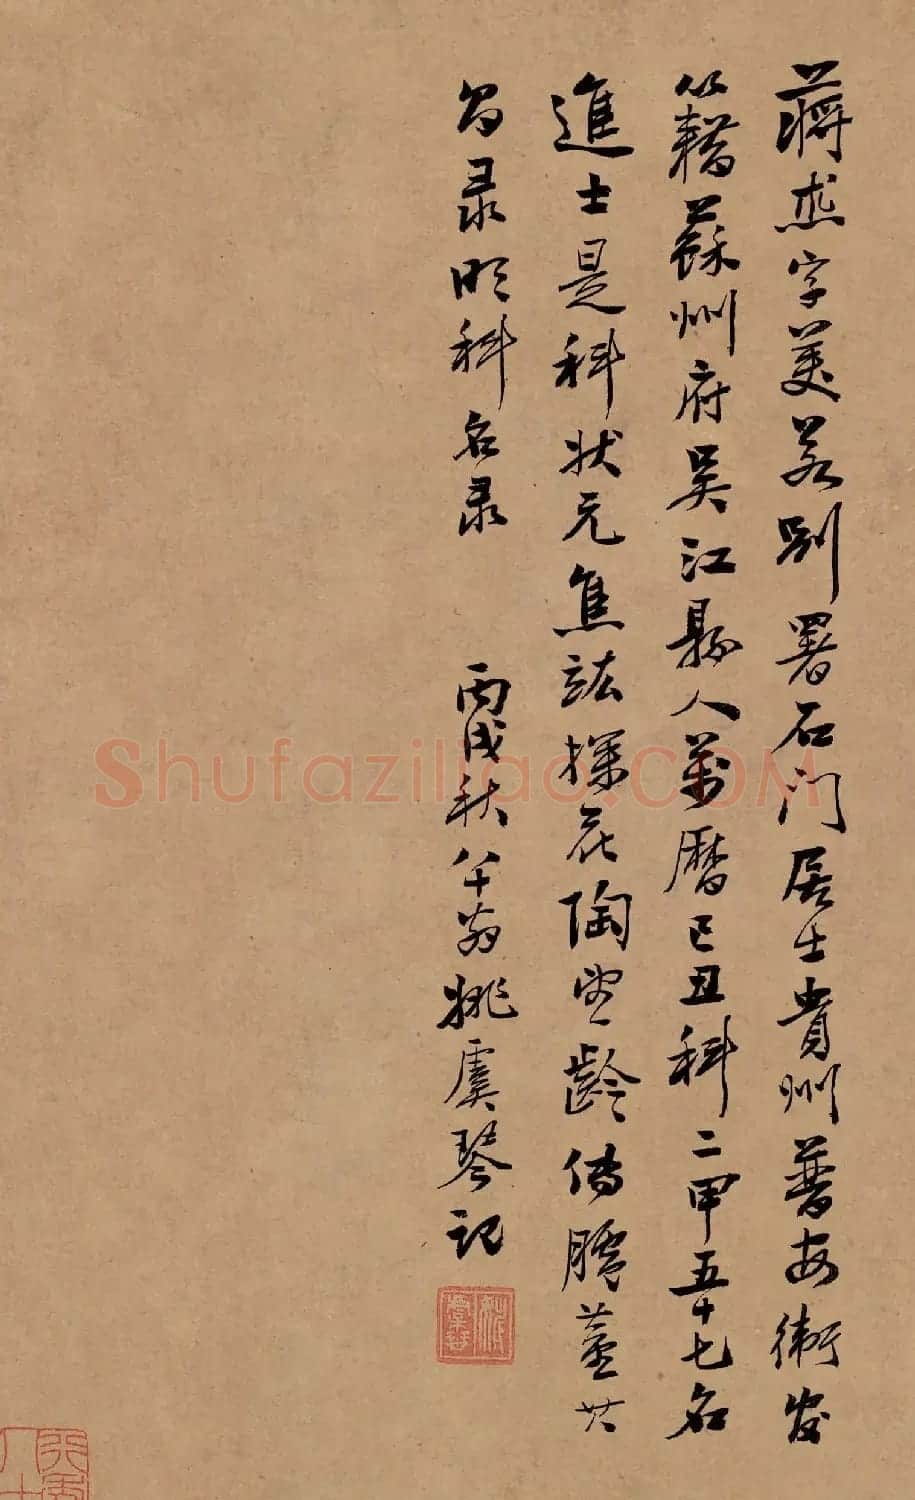 蔣杰字美若別署石门居士貴州普安衛官
籍蘇州府吴江縣人萬曆己丑科二甲五十七名
進士是科狀元焦竑探花陶望齡傳臚董其
昌录明科名录 丙戌秋八十翁姚虞琴記
Shufaziliao.COM